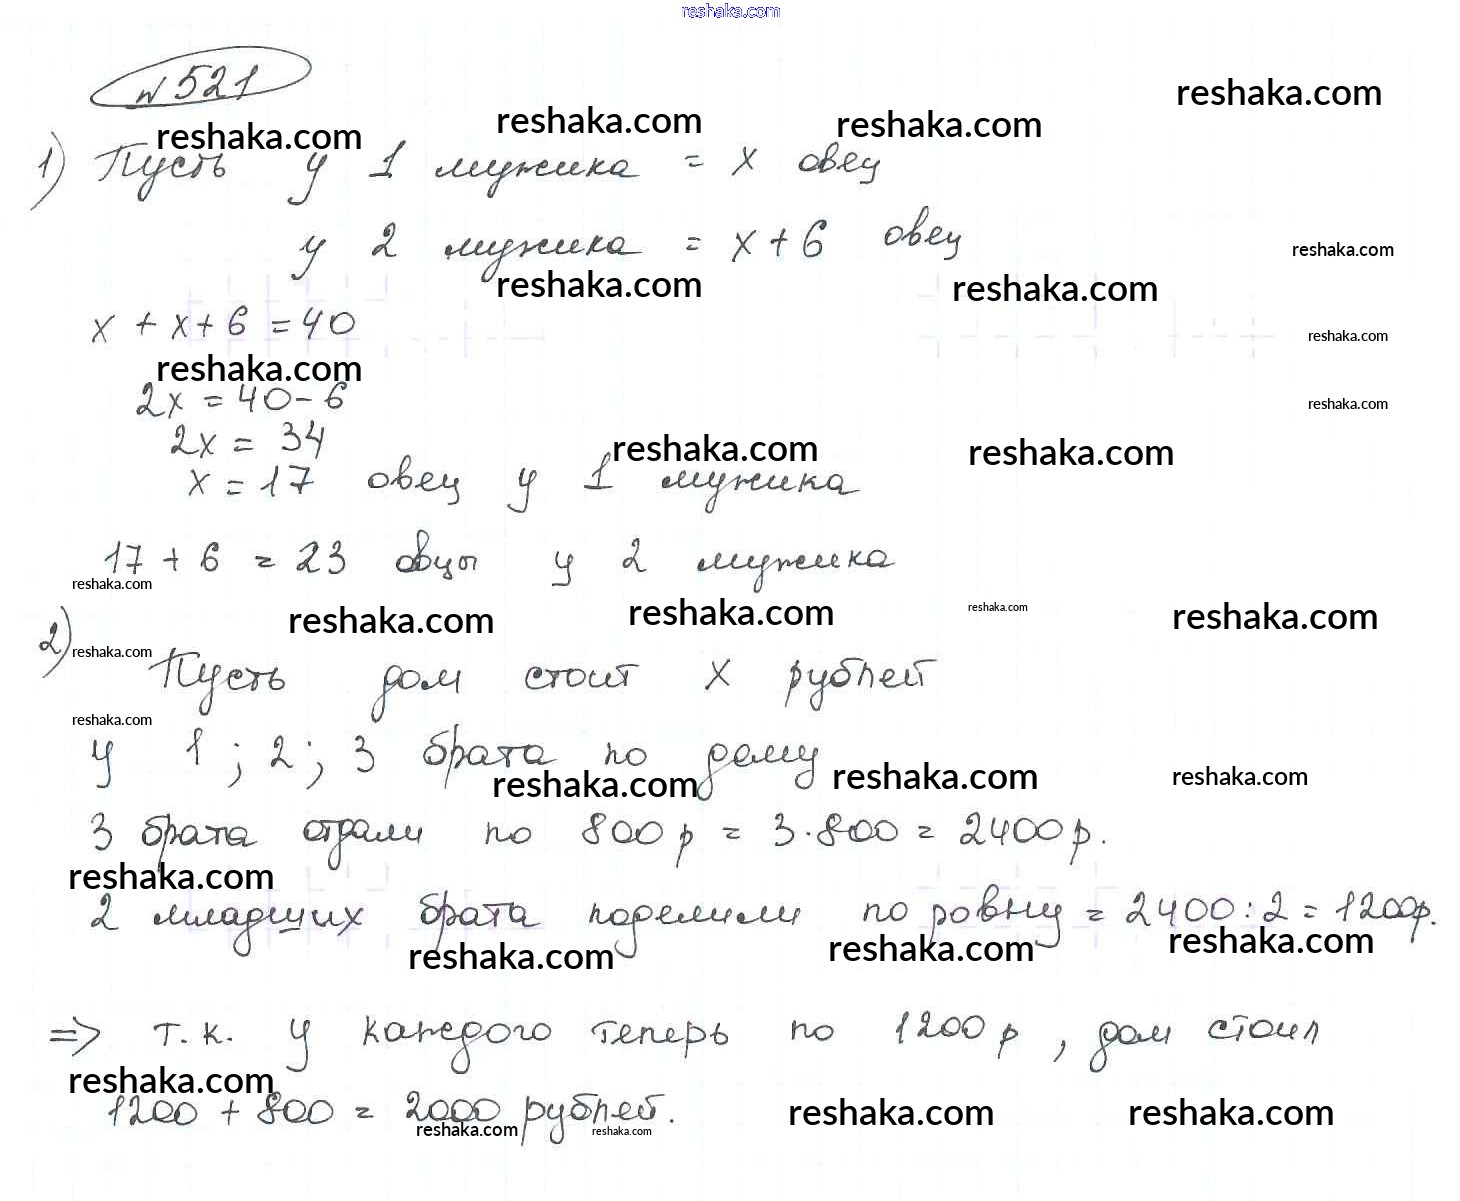 reshaka.com
№ 521
reshaka.com
reshaka.com reshaka.com reshaka.com
1) Пусть у 1 мужика = x овец
у 2 мужика = x + 6 овец
reshaka.com
reshaka.com reshaka.com
x + x + 6 = 40
reshaka.com
reshaka.com
2x = 40 - 6
reshaka.com
2x = 34
reshaka.com reshaka.com
x = 17 овец у 1 мужика
17 + 6 = 23 овцы у 2 мужика
reshaka.com
reshaka.com reshaka.com reshaka.com reshaka.com
2) Пусть дом стоит x рублей
reshaka.com
reshaka.com
у 1; 2; 3 брата по дому
reshaka.com reshaka.com reshaka.com
3 брата отдали по 800 р = 3 · 800 = 2400 р.
reshaka.com
2 младших брата поделили по ровну = 2400 : 2 = 1200р.
reshaka.com reshaka.com reshaka.com
=> т.к. у каждого теперь по 1200 р, дом стоил
reshaka.com
1200 + 800 = 2000 рублей.
reshaka.com reshaka.com reshaka.com reshaka.com